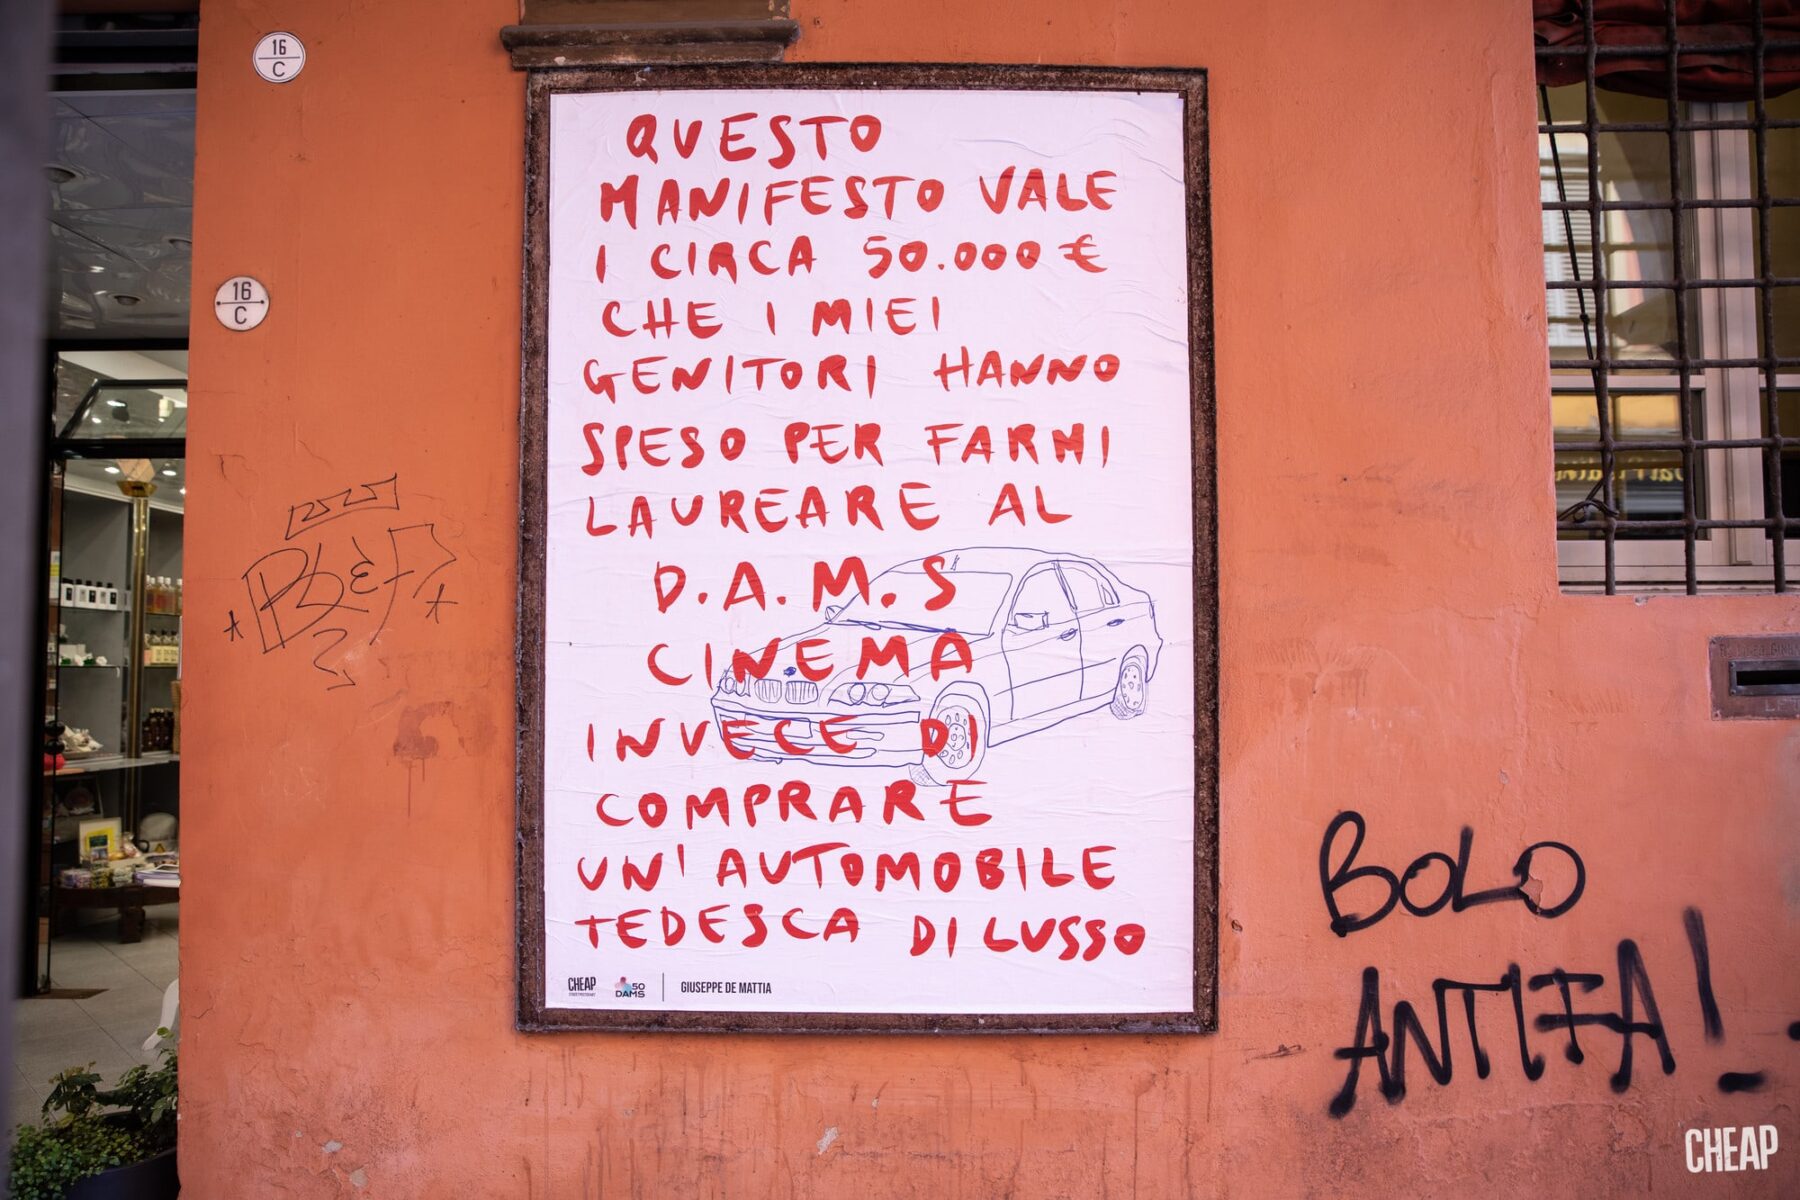 16
C
16
C
QUESTO
MANIFESTO VALE
I CIRCA 50.000 €
CHE I MIEI
GENITORI HANNO
SPESO PER FARMI
LAUREARE AL
D.A.M.S
CINEMA
INVECE DI
COMPRARE
UN'AUTOMOBILE
TEDESCA DI LUSSO
CHEAP
50
DAMS
GIUSEPPE DE MATTIA
BOLO
ANTIFA!
CHEAP